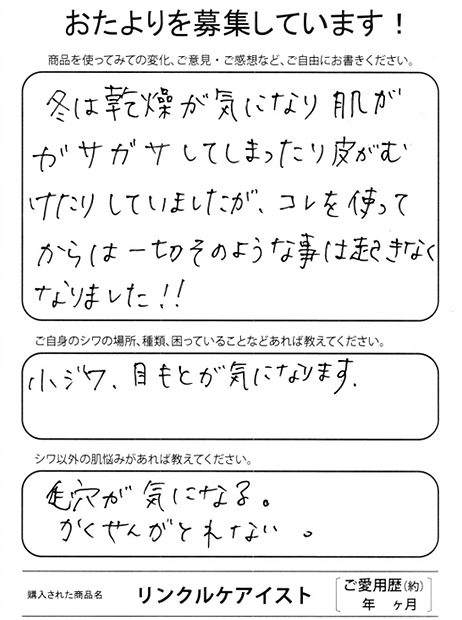 おたよりを募集しています！
商品を使ってみての変化、ご意見・ご感想など、ご自由にお書きください。
冬は乾燥が気になり肌が
ガサガサしてしまったり皮がむ
けたりしていましたが、コレを使って
からは一切そのような事は起きなく
なりました！！
ご自身のシワの場所、種類、困っていることなどあれば教えてください。
小ジワ、目もとが気になります。
シワ以外の肌悩みがあれば教えてください。
毛穴が気になる。
かくせんがとれない。
購入された商品名 リンクルケアイスト
ご愛用歴(約)
年 ヶ月